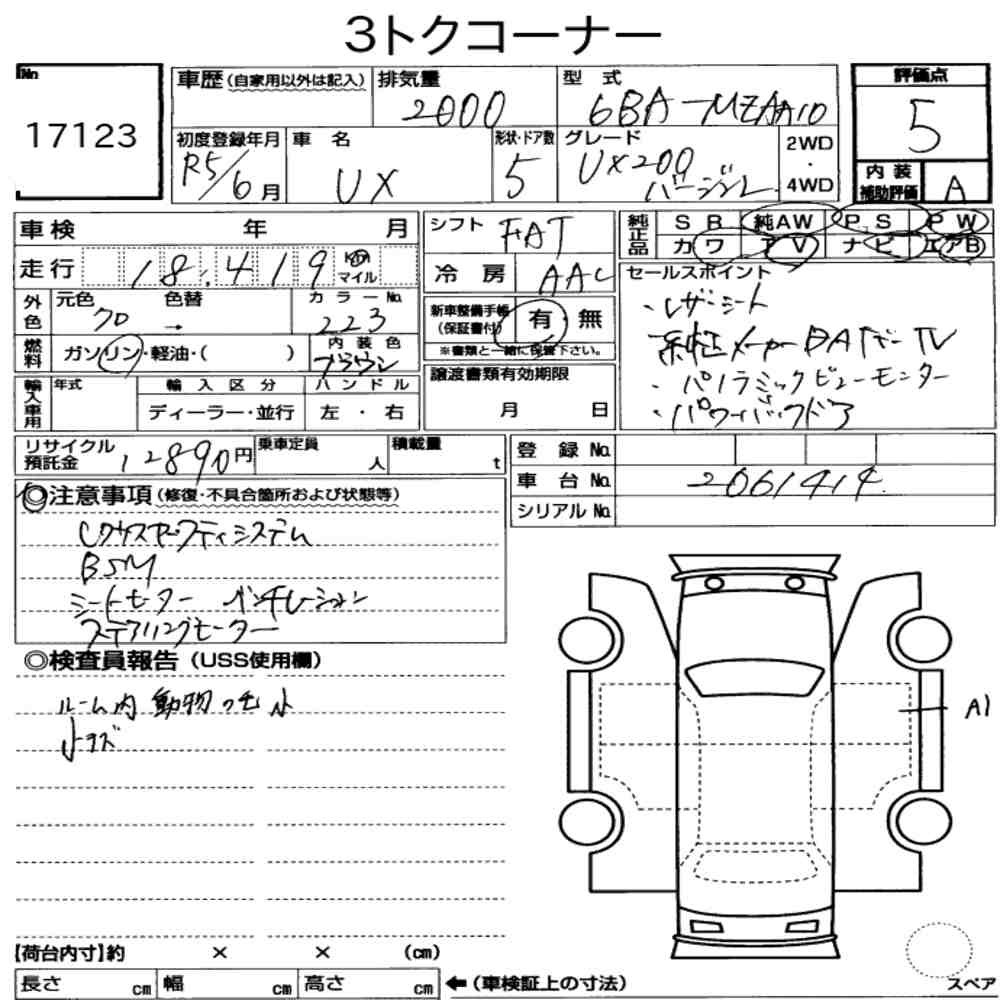 3トクコーナー
No
17123
車歴(自家用以外は記入)
排気量
2000
型 式
6BA-MZAA10
評価点
5
初度登録年月
R5/6月
車 名
UX
形状・ドア数
5
グレード
UX200
バージョンL
2WD
・
4WD
内装
補助評価
A
車検 年 月
シフト
FAT
純正品
SR 純AW PS PW
カワ アV ナビ エアB
走行
18,419
Km
マイル
冷房
AAC
セールスポイント
・レザーシート
純正メーカーBAナビTV
・パノラミックビューモニター
・パワーバックドア
外色
元色
クロ
色替
→
カラーNo.
223
新車整備手帳
(保証書付)
有・無
※書類と一緒に保管下さい。
燃料
ガソリン・軽油・( )
内装色
ブラウン
輸入車用
年式
輸入区分
ディーラー・並行
ハンドル
左・右
譲渡書類有効期限
月 日
リサイクル
預託金
12890円
乗車定員
人
積載量
t
登録No.
車台No.
2061414
シリアルNo.
◎注意事項(修復・不具合箇所および状態等)
レクサスセーフティシステム
BSM
シートヒーター ベンチレーション
ステアリングヒーター
◎検査員報告(USS使用欄)
ルーム内 動物の毛 小
小キズ
A1
【荷台内寸】約 × × (cm)
長さ cm 幅 cm 高さ cm
←(車検証上の寸法)
スペア